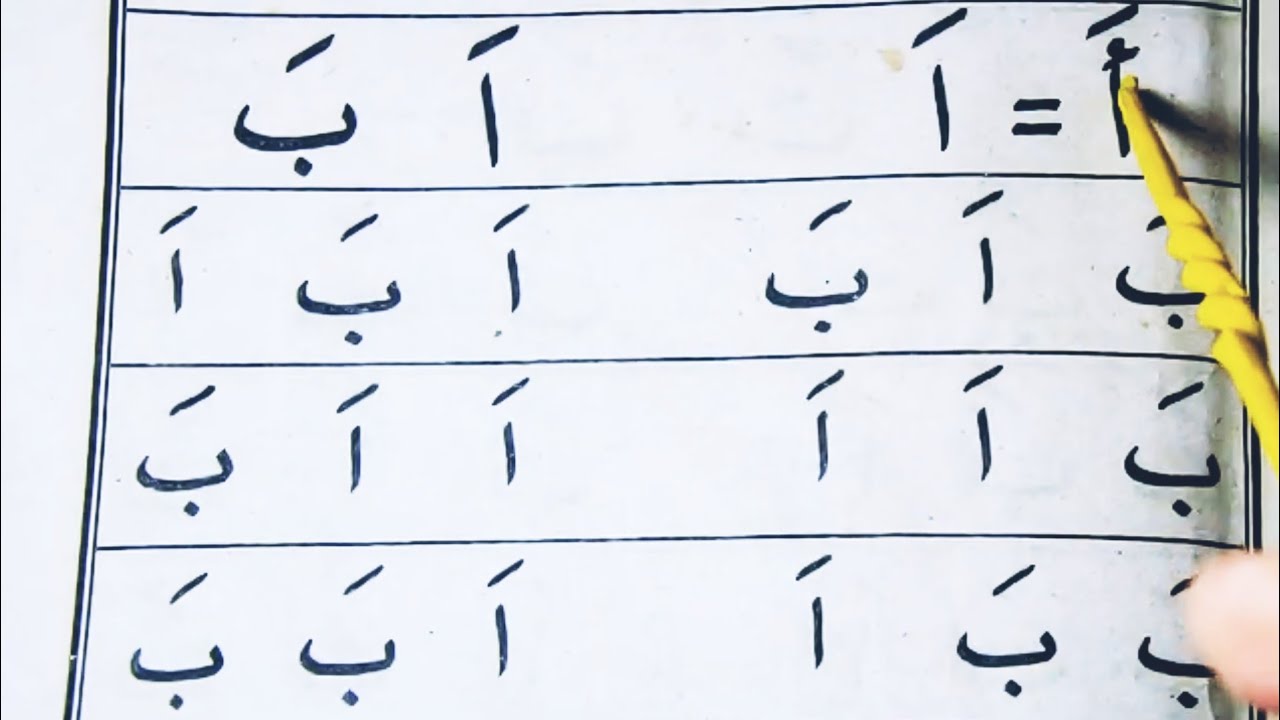 أَ = اَ اَ بَ
بَ اَ بَ اَ بَ اَ
بَ اَ اَ اَ اَ بَ
بَ بَ اَ اَ بَ بَ